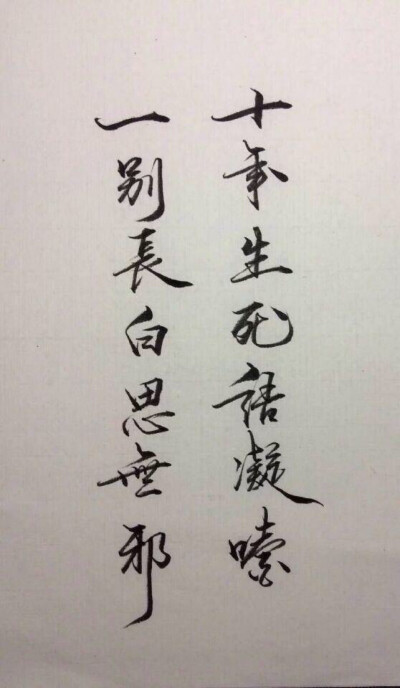 十年生死語凝噎
一别長白思無邪